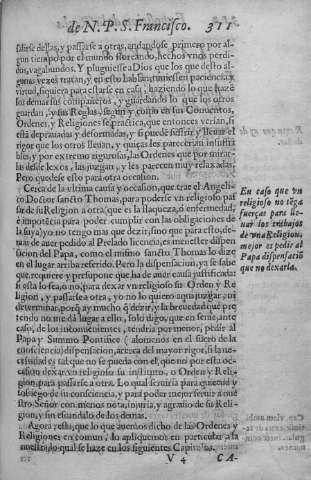 de N.P.S. Francisco. 311
salirse dellas, y passarse a otras, andandose primero por al-
gun tiempo por el mundo floreando, hechos vnos perdi-
dos, vagabundos. Y pluguiesse a Dios que los que desto al-
gunas vezes tratan, y en esto hablan, tuuiessen paciencia, y
virtud, siquiera para estarse en casa, haziendo lo que hazẽ
los demas sus compañeros, y guardando lo que los otros
guardan, y sus Reglas, segun y como en sus Conuentos,
Ordenes, y Religiones se practica, que entonces verian, si
està deprauadas y deformadas, y si puede sufrir y lleuar el
rigor que los otros lleuan, y quiças les parecerian insufri
bles, y por extremo rigurosas, las Ordenes que por mirar-
las desde lexos, las juzgan, y les parecen muy relaxadas;
Pero quedese esto para otra ocasion.
Cerca de la vltima causa y ocasion, que trae el Angeli-
co Doctor sancto Thomas, para poderse vn religioso pas
sar de su Religion a otra (que es la flaqueza, ò enfermedad,
è impotencia para poder cumplir con las obligaciones de
la suya) yo no tengo mas que dezir, sino que para esto, de-
mas de auer pedido al Prelado licencia, es menester dispen
sacion del Papa, como el mismo sancto Thomas lo dize
en el lugar arriba referido. Pero la dispensacion, ya se sabe
que requiere y presupone que ha de auer causa justificada:
si esta lo sea, ò no, para dexar vn religioso su Orden y Re
ligion, y passarse a otra, yo no lo quiero aqui juzgar, ni
determinar, porq̃ ay mucho q̃ dezir, y la breuedad que pre
tendo no me dà lugar a ello, solo digo, que en serie, ante
caso, de los inconuenientes, tendria por menor, pedir al
Papa y Summo Pontifice (alomenos en el fuero de la
consciencia) dispensacion, acerca del mayor rigor, si la ne-
cessidad es tal que no se pueda con el, que no por esta oc-
casion dexar vn religioso su instituto, o Orden y Reli-
gion, para passarse a otra. Lo qual seruiria para quietud y
sosiego de su consciencia, y para poder mejor seruir a nue
stro Señor con menos nota, injuria, y agrauio de su Reli-
gion, y sin escandalo de los demas.
Agora resta, que lo que auemos dicho de las Ordenes y
Religiones en comun, lo apliquemos en particular a la
nuestra, lo qual se haze en los siguientes Capitulos.
V 4 CA-
En caso que vn
religioso no tẽga
fuerças para lle-
uar los trabajos
de vna Religion,
mejor es pedir al
Papa dispensaciõ
que no dexarla.